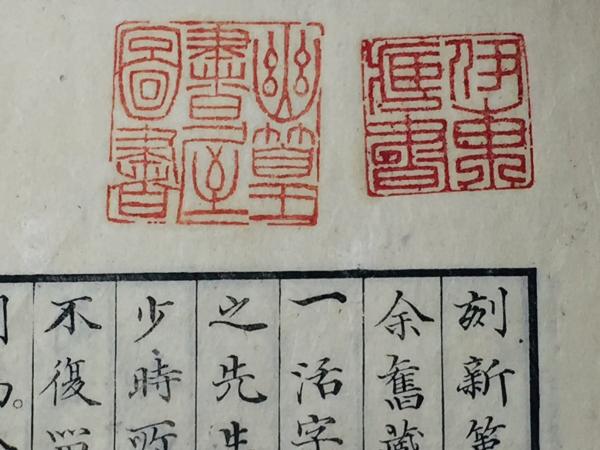 伊東
書
幽篁
書屋
圖書
刻新
余舊藏
一活字
之先生
少時所
不復